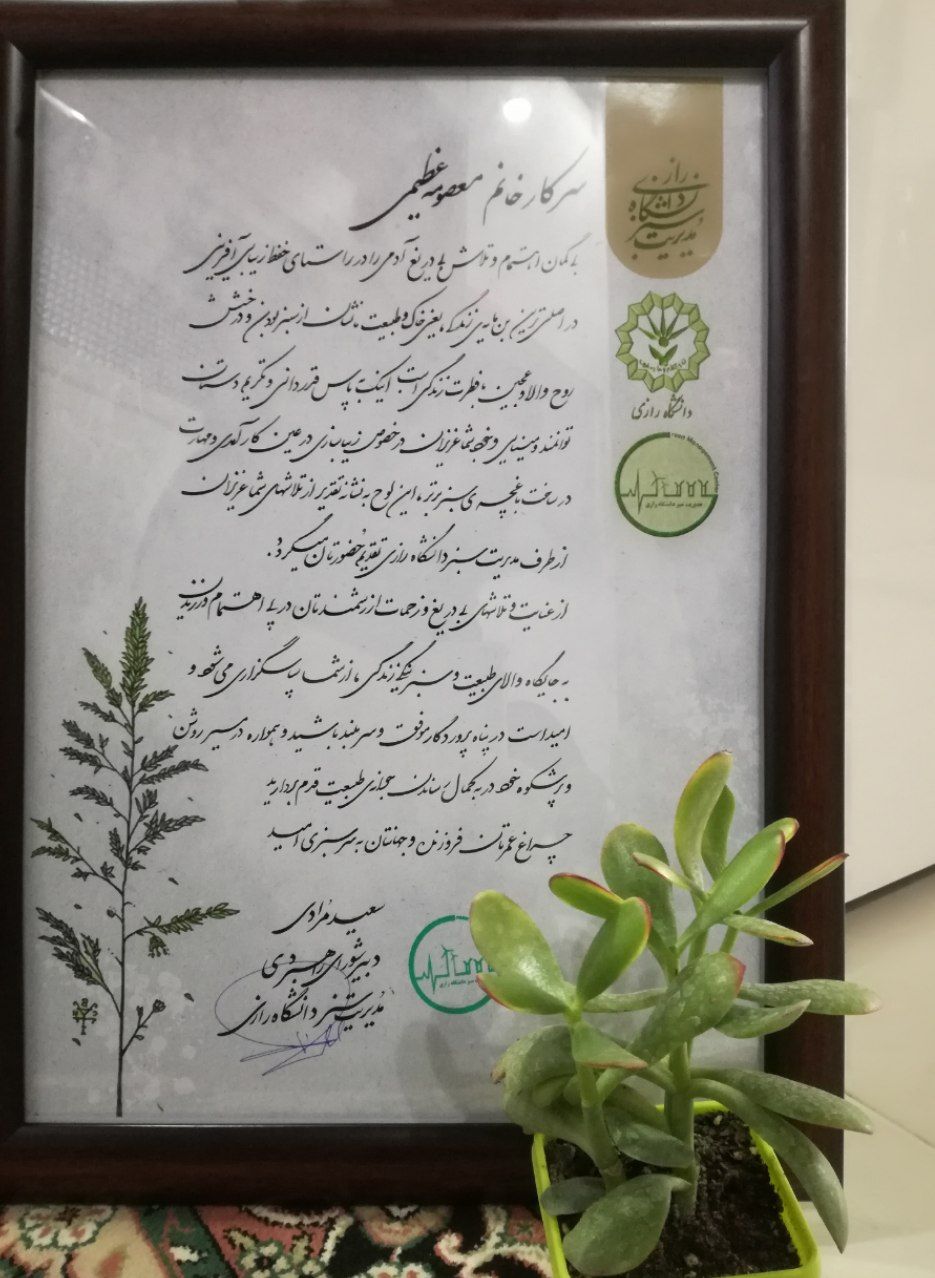 سرکار خانم معصومه عظیمی
بی‌گمان اهتمام و تلاش بی‌دریغ آدمی را در راستای حفظ زیبایی آفرینی
در اصلی‌ترین بن‌مایه‌ی زندگی یعنی خاک و طبیعت، نشان از سبز بودن و درخشش
روح والا و عجین با فطرت زندگی است اینک به پاس قدردانی و تکریم دستان
توانمند و مینایی و خجسته شما عزیزان در خصوص زیباسازی در عین کارآمدی و مهارت
در ساخت باغچه‌ی سبز برتر، این لوح به نشانه تقدیر از تلاشهای شما عزیزان
از طرف مدیریت سبز دانشگاه رازی تقدیم حضورتان میگردد.
از عنایت و تلاشهای بی‌دریغ و زحمات ارزشمندتان در پی اهتمام ورزیدن
به جایگاه والای طبیعت و سبز زندگی، از شما سپاسگزاری می‌شود و
امید است در پناه پروردگار موفق و سربلند باشید و همواره در مسیر روشن
و پرشکوه خود در به کمال رساندن طبیعت قدم بردارید
چراغ عمرتان فروزنده و جهانتان به سرسبزی امید
سعید مرادی
دبیر شورای راهبردی
مدیریت سبز دانشگاه رازی
مدیریت سبز دانشگاه رازی
دانشگاه رازی
Green Management
مدیریت سبز دانشگاه رازی
مدیریت سبز دانشگاه رازی